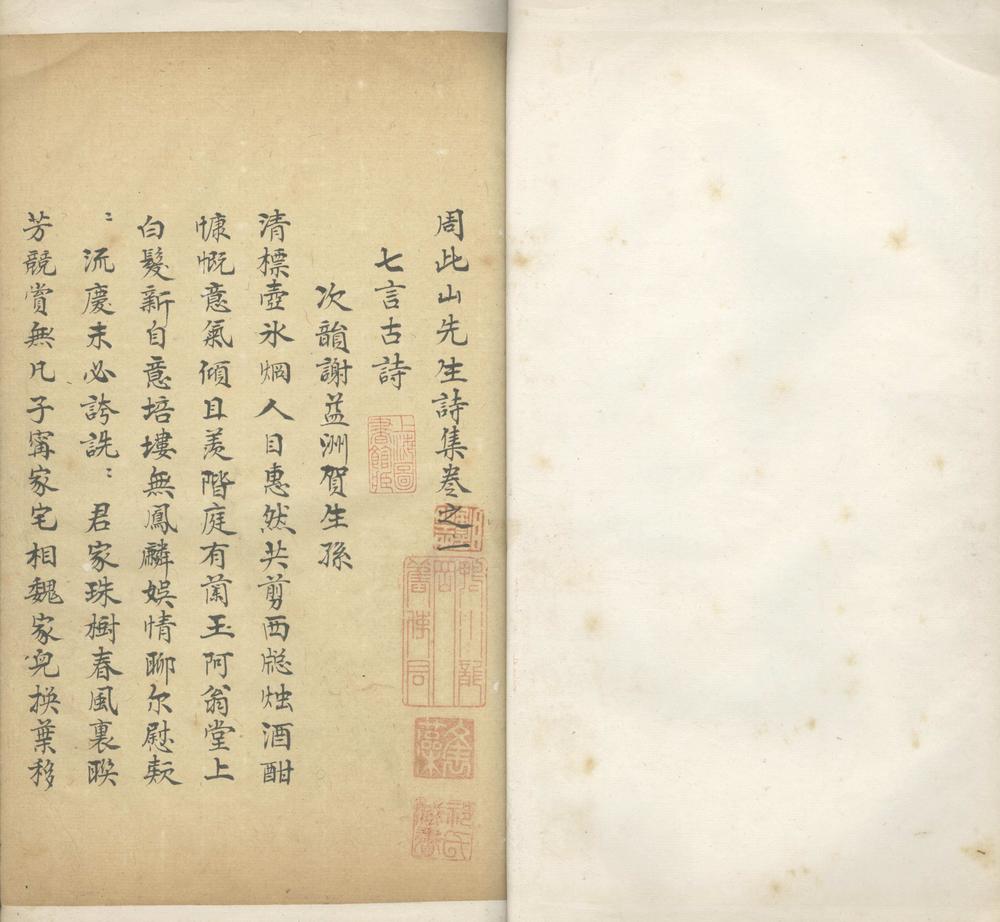 周此山先生詩集卷之一
七言古詩
次韻謝益洲賀生孫
清標壺氷烱人目惠然共剪西牕烛酒酣
慷慨意氣傾且羡階庭有蘭玉阿翁堂上
白髮新自意培塿無鳳麟娱情聊尔慰
:流慶未必誇詵:君家珠樹春風裏聮
芳競賞無凡子寗家宅相魏家児换葉移
上海圖書館